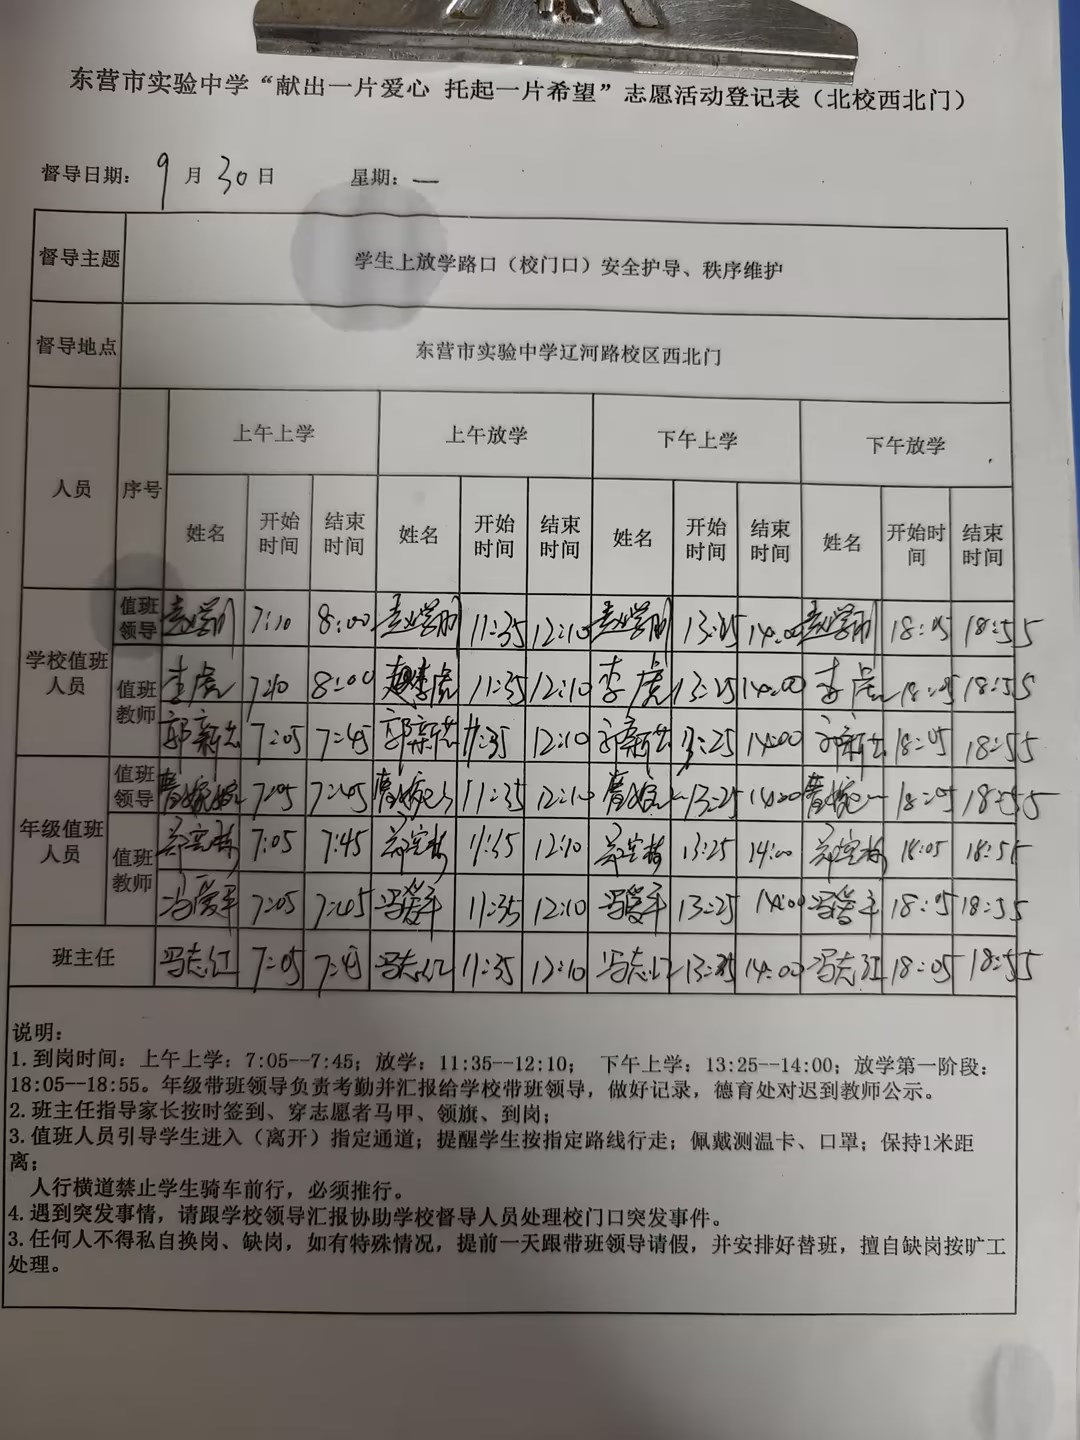 东营市实验中学“献出一片爱心 托起一片希望”志愿活动登记表（北校西北门）
督导日期：9月30日 星期：一
督导主题 学生上放学路口（校门口）安全护导、秩序维护
督导地点 东营市实验中学辽河路校区西北门
人员 序号 上午上学 上午放学 下午上学 下午放学
姓名 开始时间 结束时间 姓名 开始时间 结束时间 姓名 开始时间 结束时间 姓名 开始时间 结束时间
学校值班人员 值班领导 7:10 8:00 11:35 12:10 13:25 14:00 18:05 18:55
值班教师 李虎 8:00 李虎 11:35 12:10 李虎 13:25 14:00 李虎 18:05 18:55
郭新志 7:05 7:45 郭新志 11:35 12:10 郭新志 13:25 14:00 郭新志 18:05 18:55
年级值班人员 值班领导 7:05 7:45 11:35 12:10 13:25 14:00 18:05 18:55
值班教师 7:05 7:45 11:35 12:10 13:25 14:00 18:05 18:55
冯爱平 7:05 7:45 冯爱平 11:35 12:10 冯爱平 13:25 14:00 冯爱平 18:05 18:55
班主任 冯志红 7:05 7:45 冯志红 11:35 12:10 冯志红 13:25 14:00 冯志红 18:05 18:55
说明：
1.到岗时间：上午上学：7:05--7:45；放学：11:35--12:10； 下午上学：13:25--14:00；放学第一阶段：
18:05--18:55。年级带班领导负责考勤并汇报给学校带班领导，做好记录，德育处对迟到教师公示。
2.班主任指导家长按时签到、穿志愿者马甲、领旗、到岗；
3.值班人员引导学生进入（离开）指定通道；提醒学生按指定路线行走；佩戴测温卡、口罩；保持1米距
离；
人行横道禁止学生骑车前行，必须推行。
4.遇到突发事情，请跟学校领导汇报协助学校督导人员处理校门口突发事件。
3.任何人不得私自换岗、缺岗，如有特殊情况，提前一天跟带班领导请假，并安排好替班，擅自缺岗按旷工
处理。